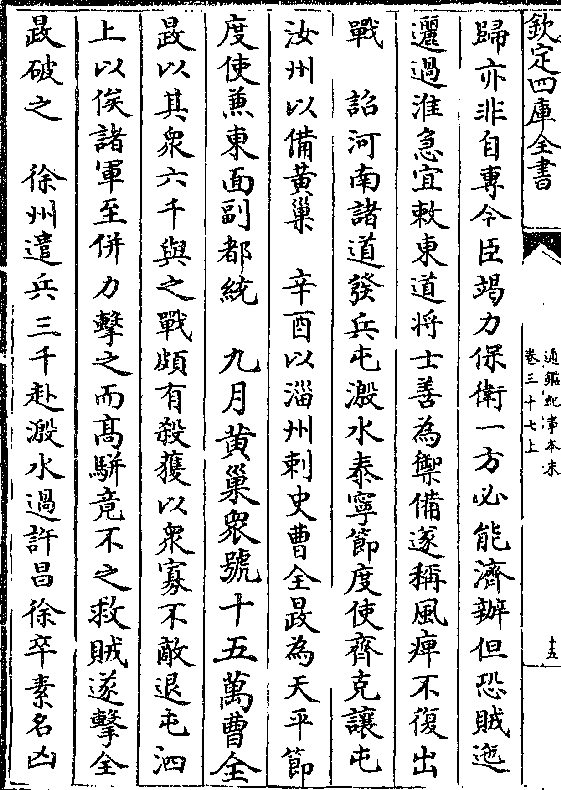 欽定四庫全書
通鑑紀事本末
卷三十七上
十五
歸亦非自專今臣竭力保衛一方必能濟辦但恐賊迤
邐過淮急宜敕東道將士善為禦備遂稱風痺不復出
戰　詔河南諸道發兵屯溵水泰寧節度使齊克讓屯
汝州以備黃巢　辛酉以淄州刺史曹全晸為天平節
度使兼東面副都統　九月黃巢衆號十五萬曹全
晸以其衆六千與之戰頗有殺獲以衆寡不敵退屯泗
上以俟諸軍至併力擊之而高駢竟不之救賊遂擊全
晸破之　徐州遣兵三千赴溵水過許昌徐卒素名凶